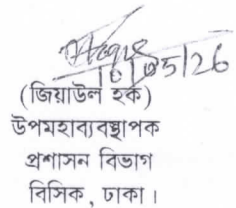 ১০/০৫/২৬
(জিয়াউল হক)
উপমহাব্যবস্থাপক
প্রশাসন বিভাগ
বিসিক, ঢাকা।